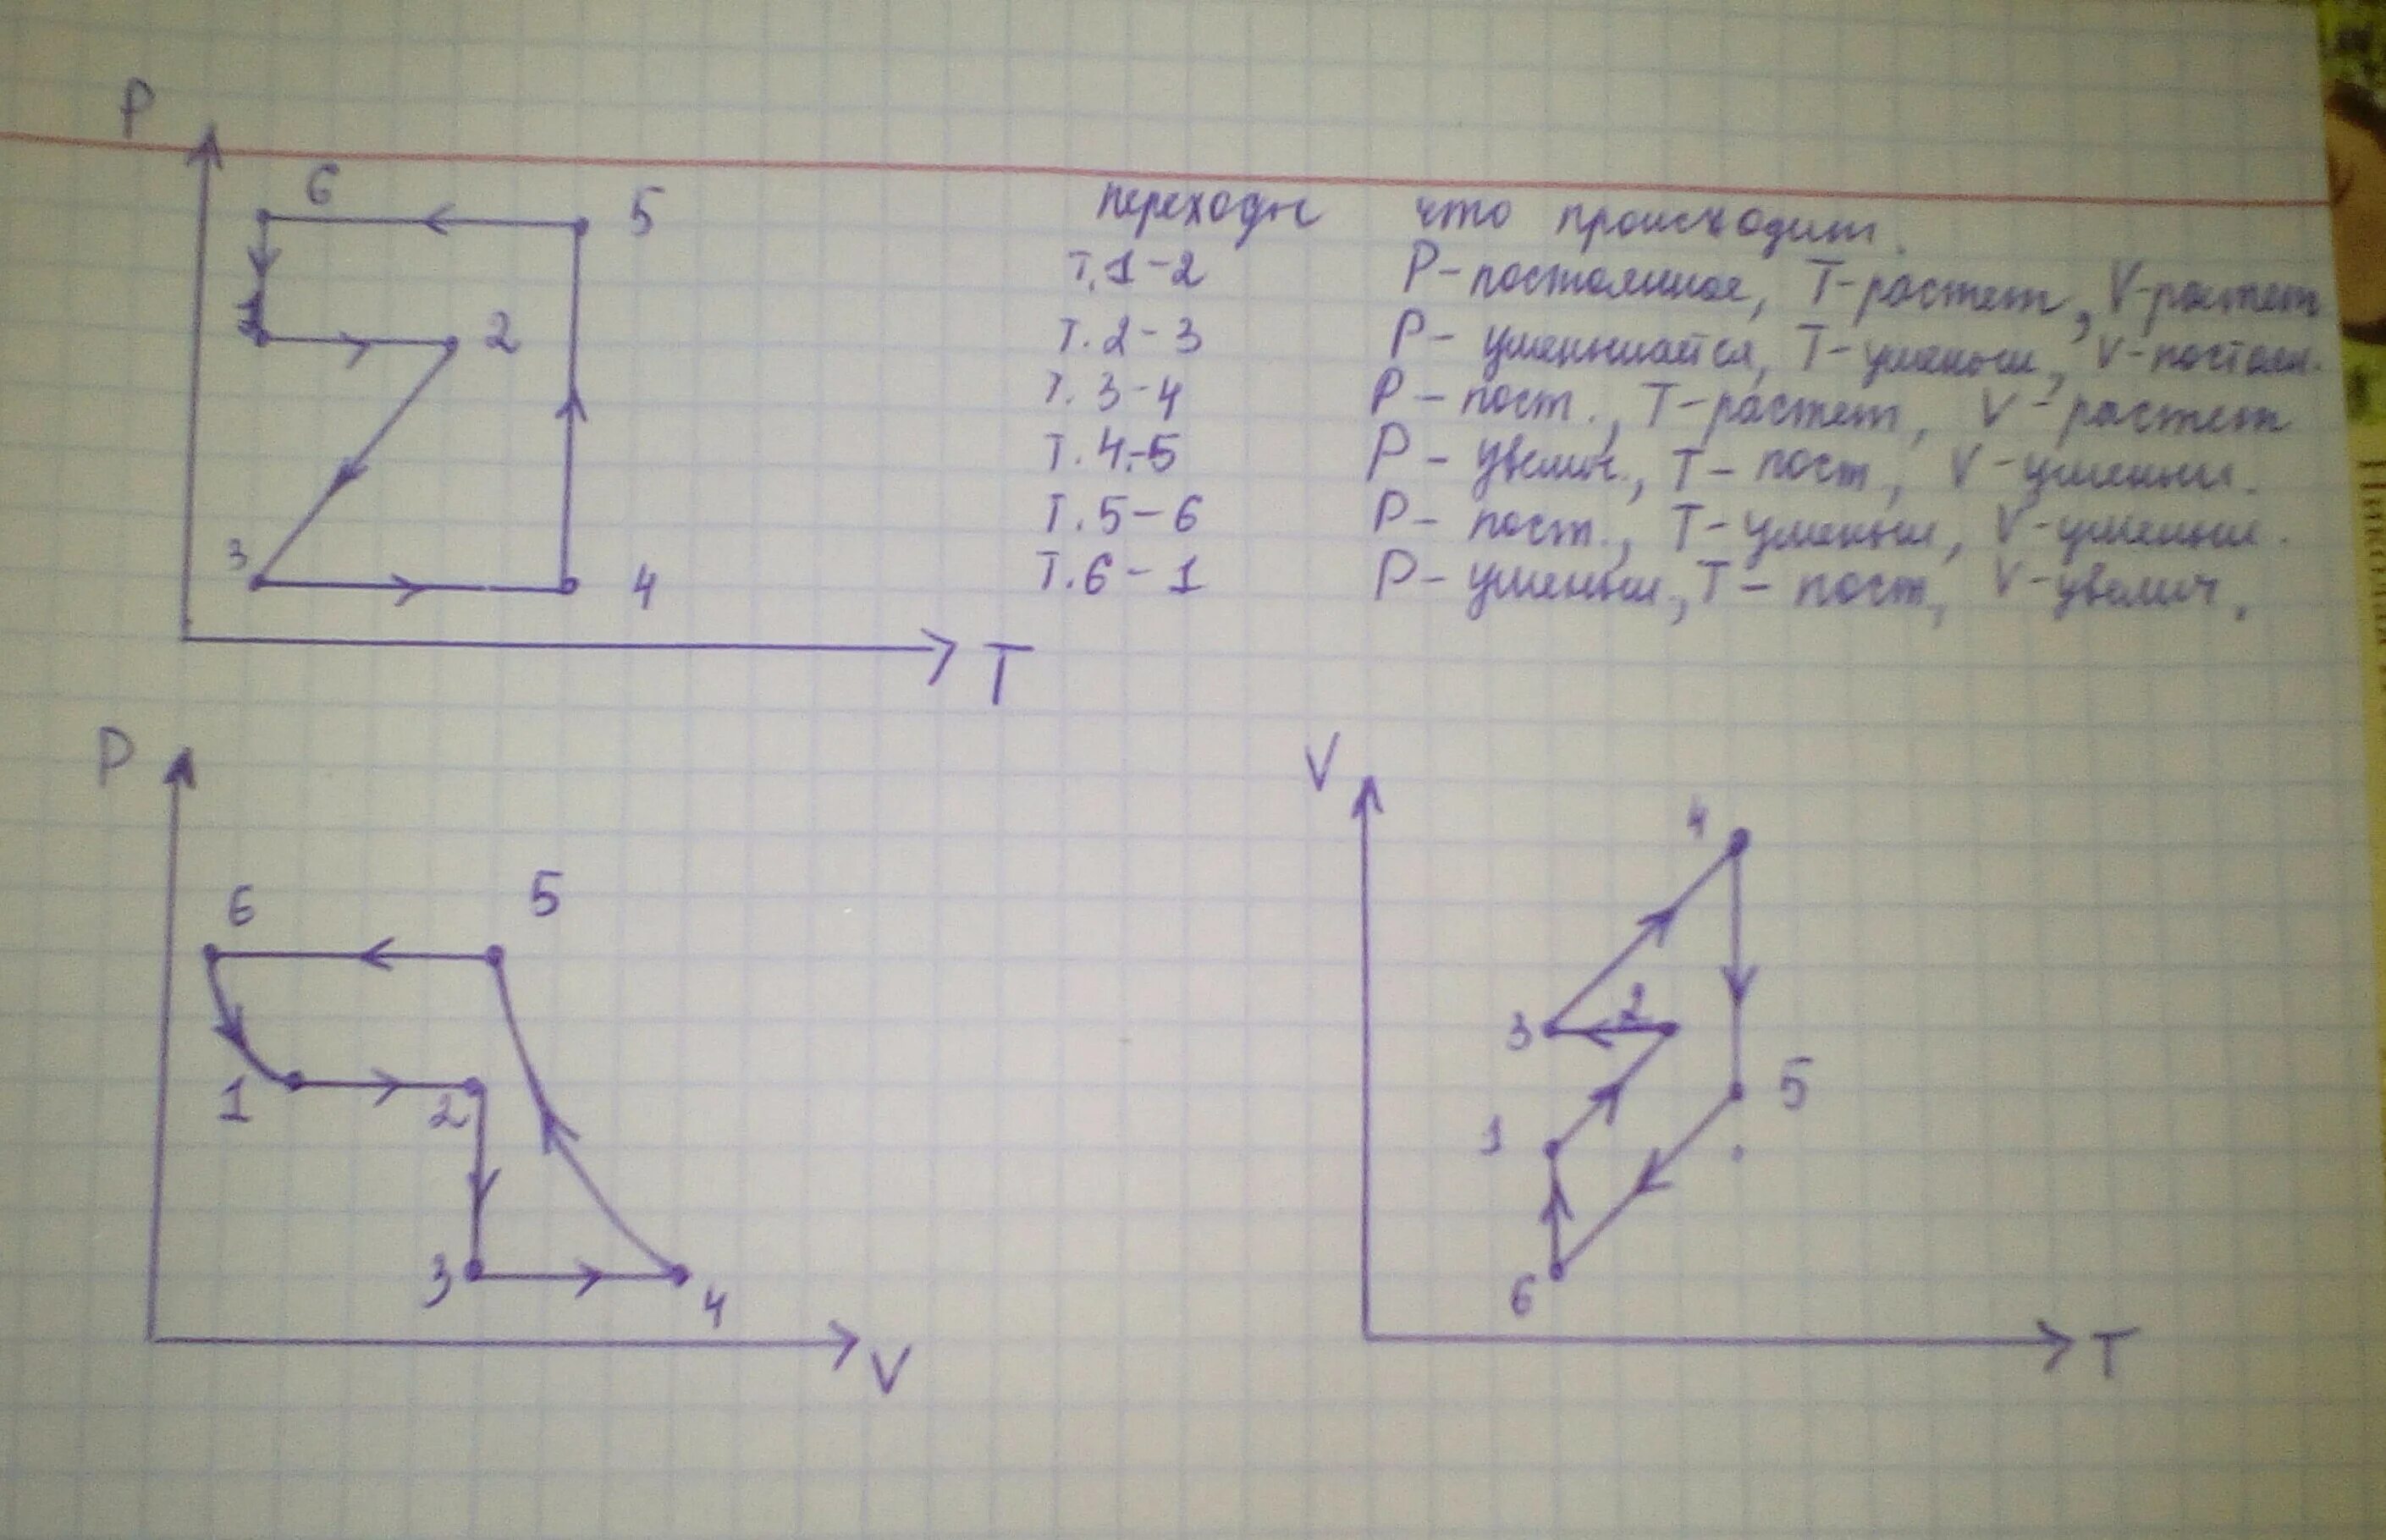 P
6
5
1
2
3
4
T
переходы что происходит.
т.1-2 P-постоянное, T-растет, V-растет
т.2-3 P-уменьшается, T-уменьш, V-постоян.
т.3-4 P-пост., T-растет, V-растет
т.4-5 P-увелич., T-пост, V-уменьш.
т.5-6 P-пост., T-уменьш, V-уменьш.
т.6-1 P-уменьш., T-пост, V-увелич.
P
6
5
1
2
3
4
V
V
4
3
2
1
5
6
T